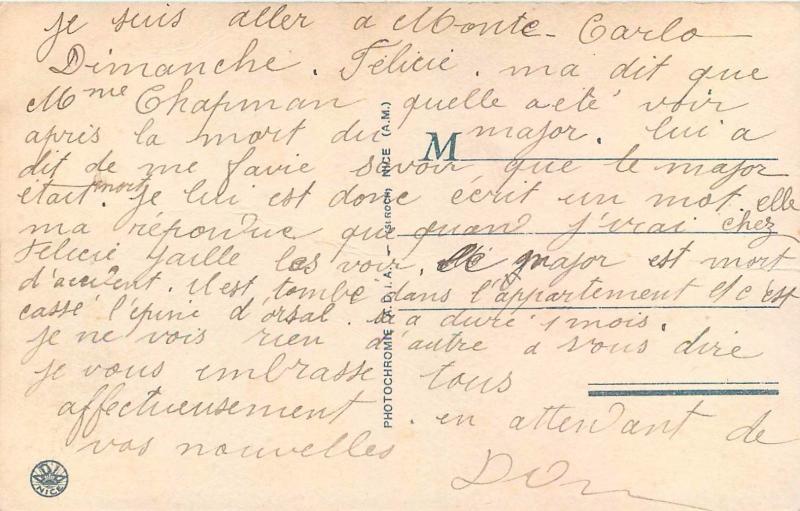 je suis aller a Monte-Carlo
Dimanche. Félicie. ma dit que
Mme Chapman quelle a été voir
après la mort du major. lui a
dit de me favie savoir que le major
était mort. je lui est donc écrit un mot. elle
ma répondue que quand j'irai chez
Félicie jaille les voir. le major est mort
d'accident. il est tombé dans l'appartement il c'est
cassé l'épine d'orsal. sa a duré 1 mois.
je ne vois rien d'autre a vous dire
je vous embrasse tous
affectueusement. en attendant de
vos nouvelles
M
PHOTOCHROMIE "A.D.I.A." — (St ROCH) NICE (A.M.)
ADIA
NICE